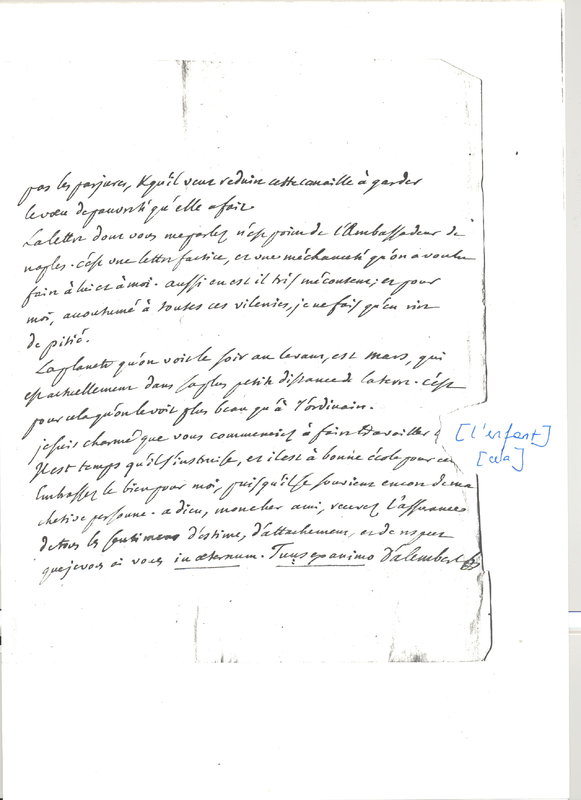 pas les parjures, & qu'il veut reduire cette canaille à garder
le vœu de pauvreté qu'elle a fait.
La lettre dont vous me parlez n'est point de l'Ambassadeur de
naples. c'est une lettre factice, et une méchanceté qu'on a voulu
faire à lui et à moi. aussi en est il très mécontent; et pour
moi, accoutumé à toutes ces vilenies, je ne fais qu'en rire
de pitié.
La planete qu'on voit le soir au levant, est mars, qui
est actuellement dans sa plus petite distance de la terre. c'est
pour cela qu'on le voit plus beau qu'à l'ordinaire.
je suis charmé que vous commenciez à faire travailler [l'enfant]
Il est temps qu'il s'instruise, et il est à bonne école pour ce [cela]
Embrassez le bien pour moi, puisqu'il se souvient encore de ma
chetive personne. adieu, mon cher ami, recevez l'assurance
de tous les sentimens d'estime, d'attachement, et de respect
que je vous ai voués in æternum. Tuus ex animo D'alembert